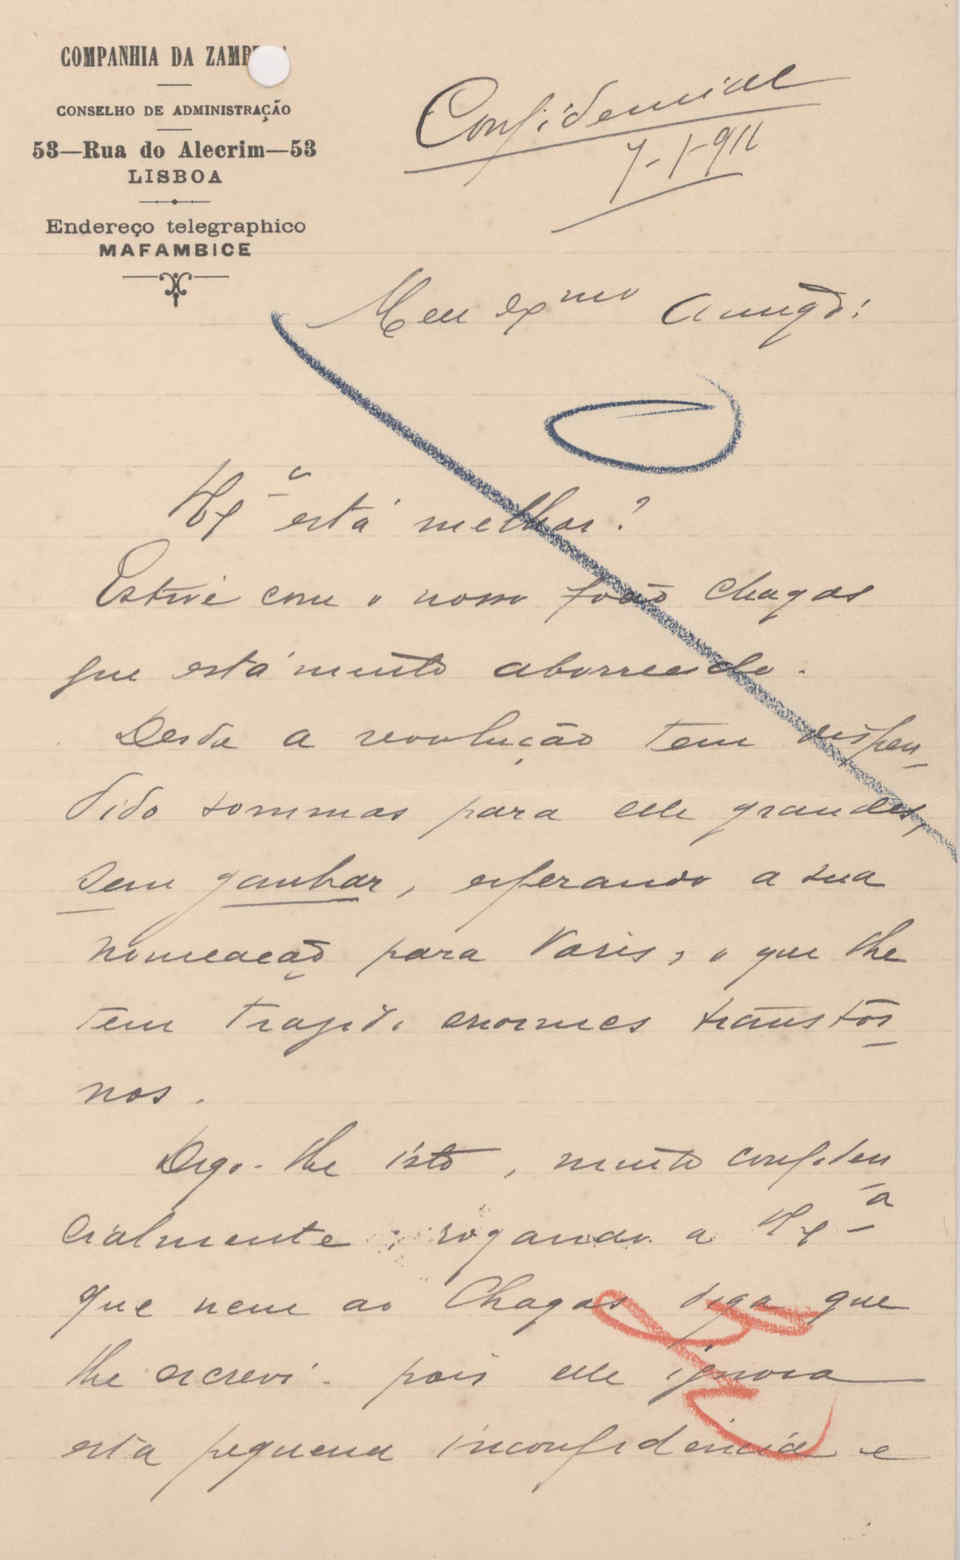 COMPANHIA DA ZAMB
CONSELHO DE ADMINISTRAÇÃO
53—Rua do Alecrim—53
LISBOA
Endereço telegraphico
MAFAMBICE
Confidencial
7-1-911
Meu exmo Amigo:
está melhor?
Estive com o nosso João Chagas
que está muito aborrecido.
Desde a revolução tem dispen-
dido sommas para elle grandes,
sem ganhar, esperando a sua
nomeação para Paris, o que lhe
tem trazido enormes transtor-
nos.
Digo-lhe isto, muito confiden-
cialmente, rogando a
que nem ao Chagas diga que
lhe escrevi. pois elle ignora
esta pequena inconfidencia e